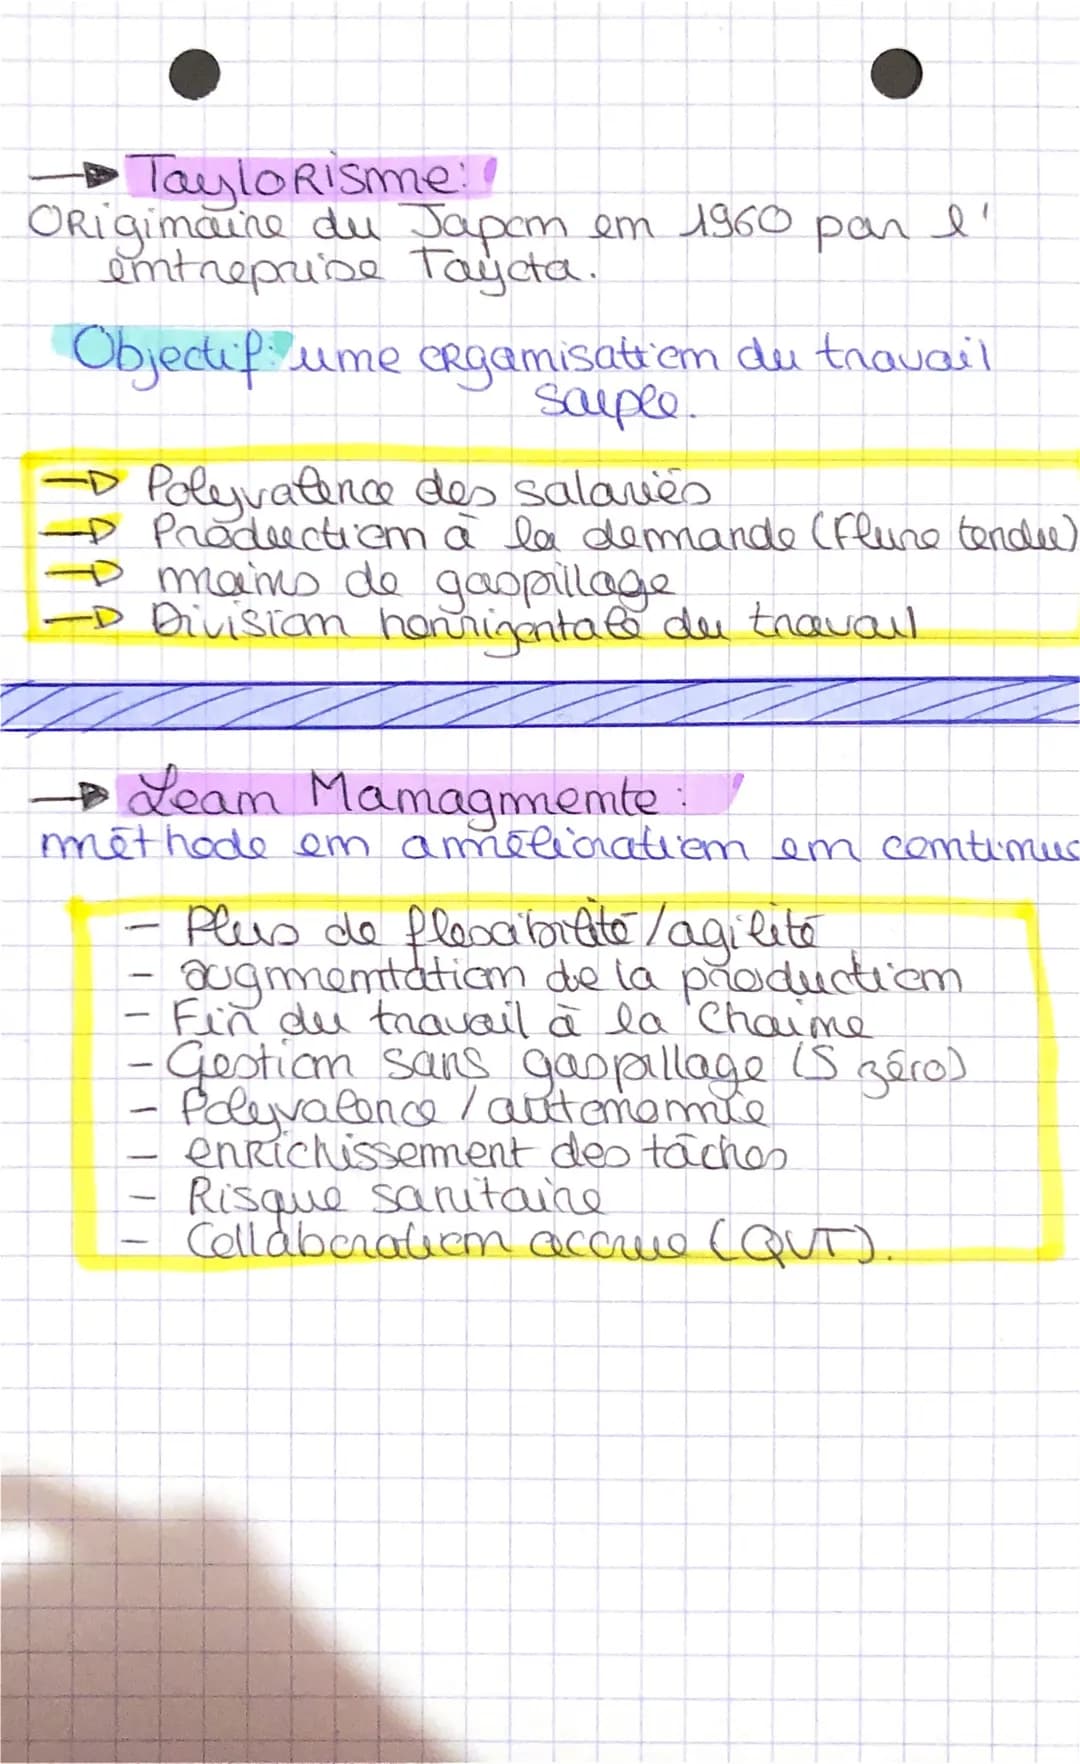 → Taylorisme:
Originaire du Japon en 1960 par l'
entreprise Tayota.
Objectif: une organisation du travail
souple.
→ Polyvalence des salariés
→ Production à la demande (Flure tendue)
→ moins de gaspillage
→ Division horrizontale du travail
→ Lean Managmente :
méthode en amélioration en continus
- Plus de flexibilité / agilité
- augmentation de la production
- Fin du travail à la chaine
- Gestion sans gaspillage (5 zéro)
- Polyvalence / autonomie
- enrichissement des tâches
- Risque sanitaire
- Collaboration accrue (QVT).